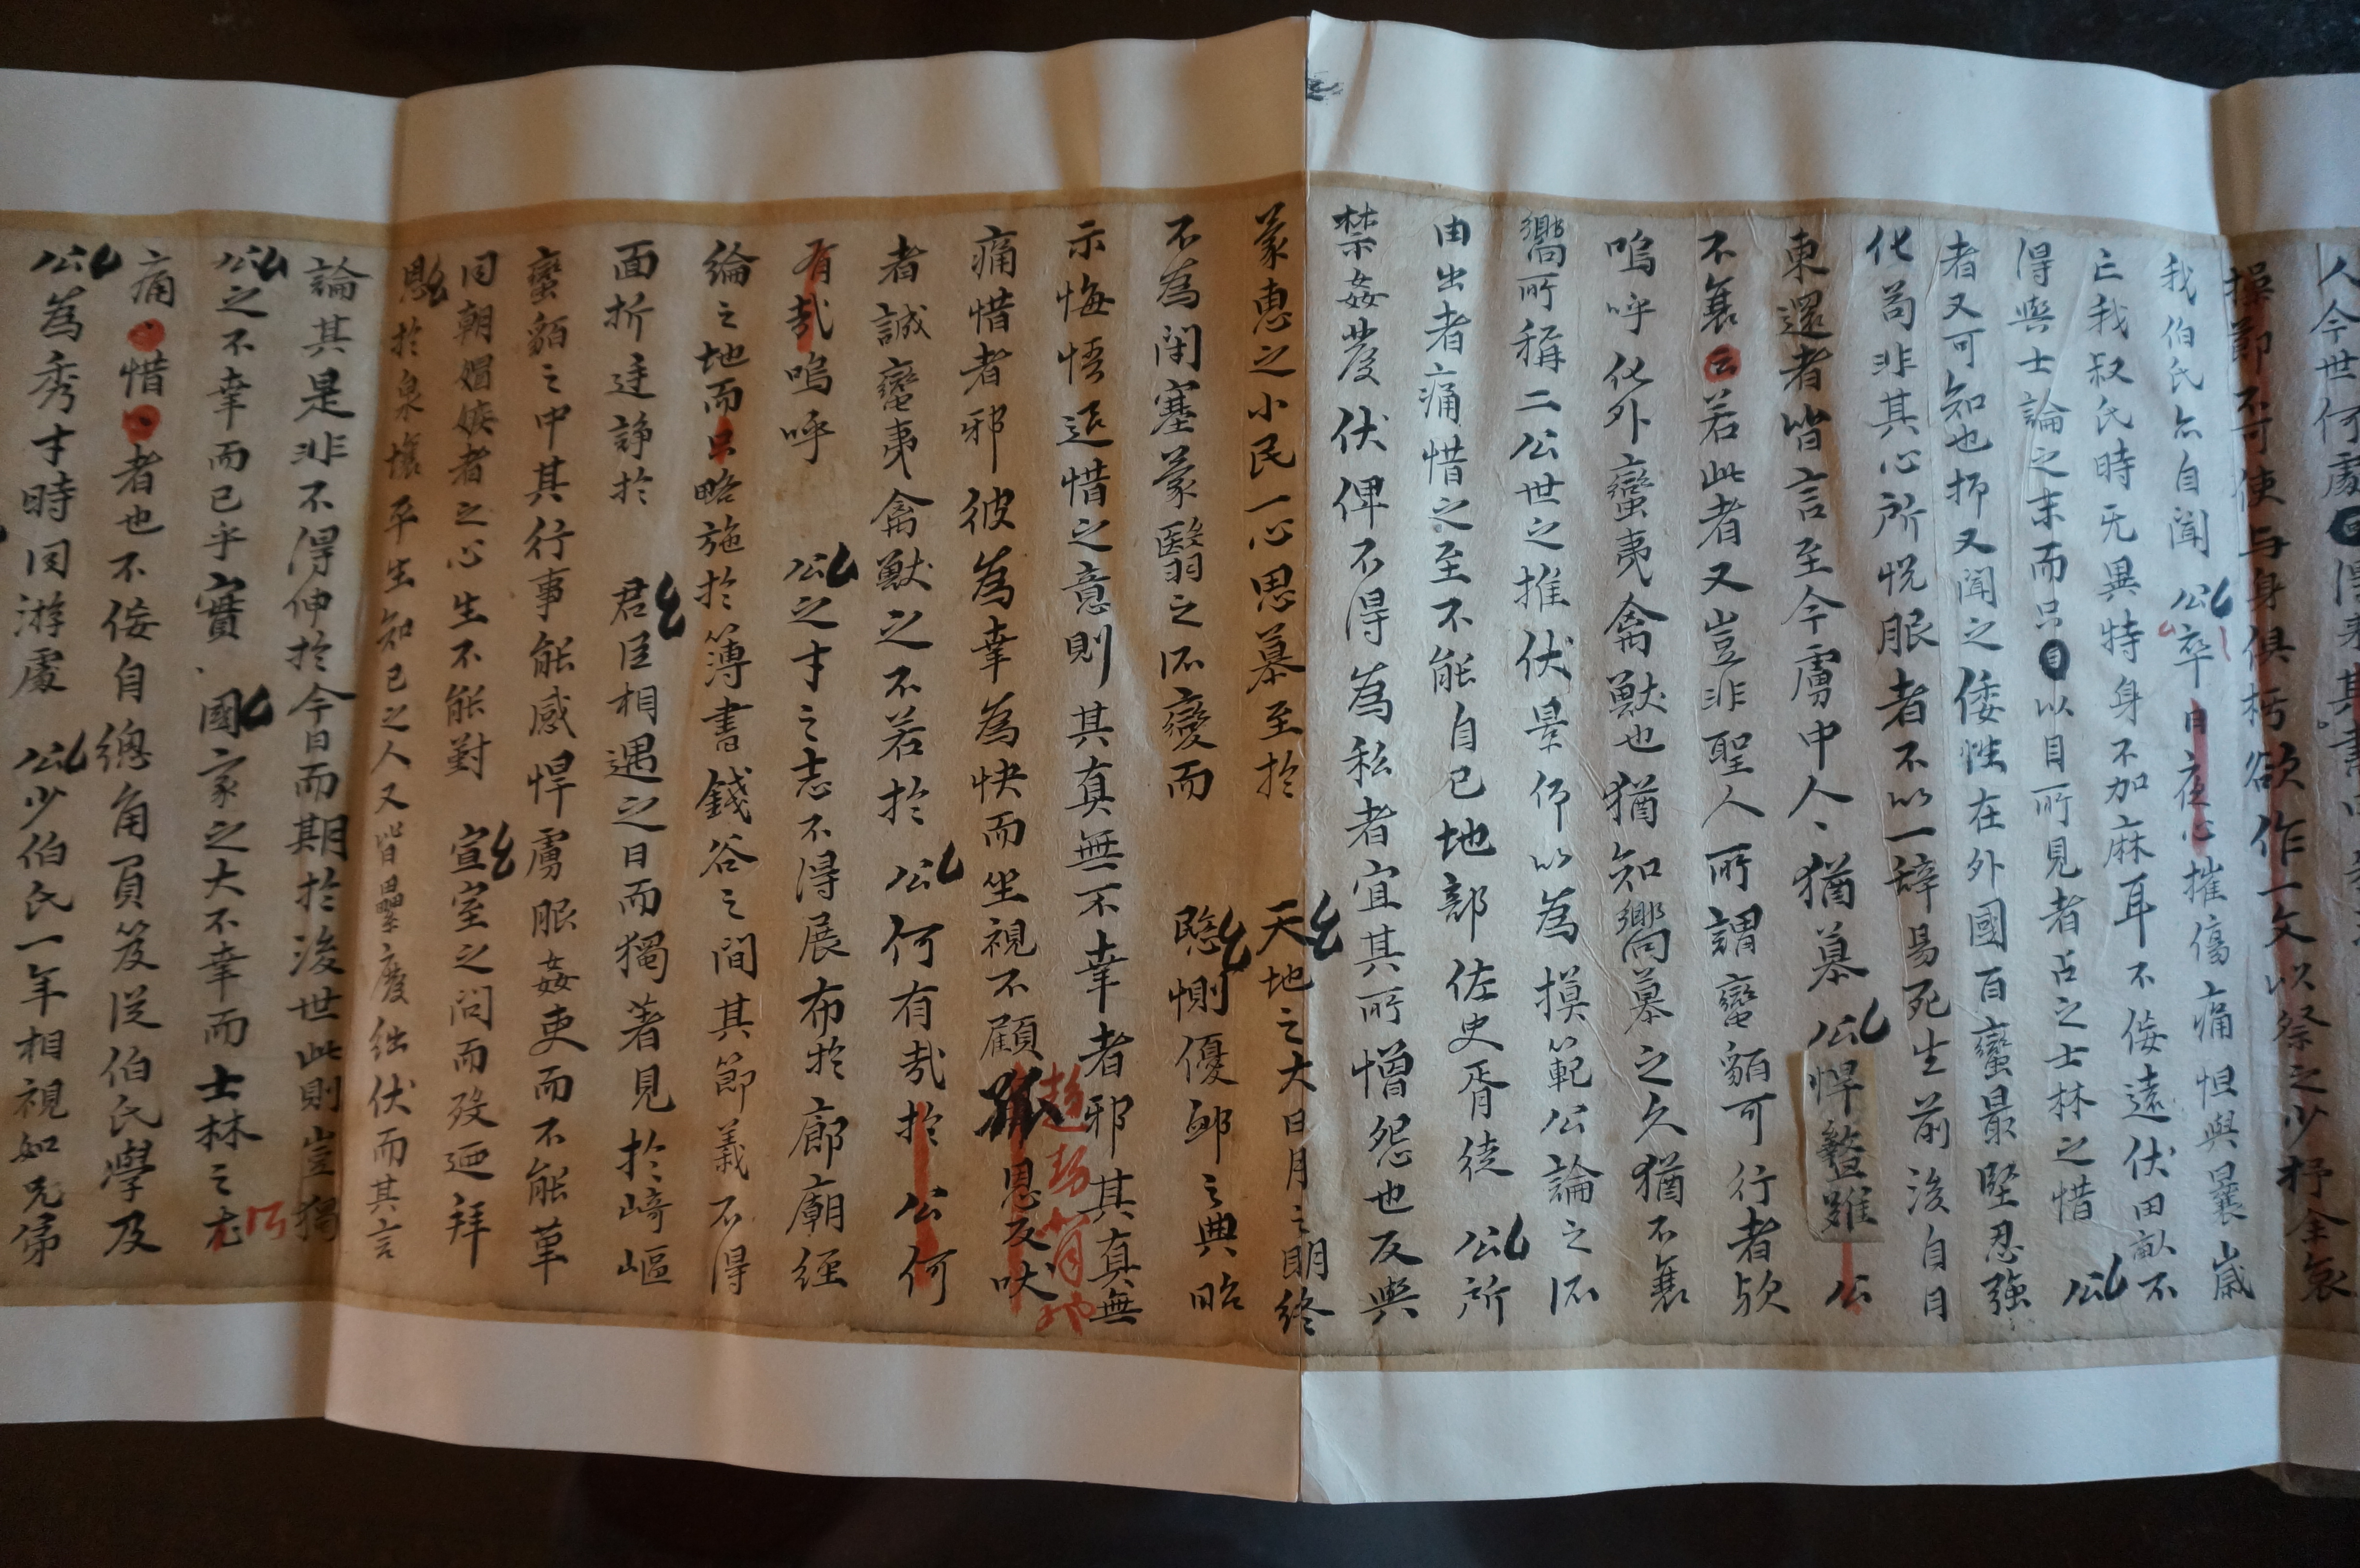 人今世何處
操節不可使与身俱朽欲作一文以祭之少抒全哀
我伯氏亦自聞公卒自夜心摧傷痛怛與曩歲
亡我叔氏時无異特身不加麻耳不佞遠伏田畝不
得與士論之末而只以目所見者占之士林之惜公
者又可知也抑又聞之倭性在外國百蠻最堅忍強
化苟非其心所悅服者不以一辞易死生前後自日
東還者皆言至今虜中人猶慕公悍鷙雖公
不衰云若此者又豈非聖人所謂蠻貊可行者歟
嗚呼化外蠻夷禽獸也猶知嚮慕之久猶不衰
嚮所稱二公世之推伏景仰以為摸範公論之不
由出者痛惜之至不能自已地部佐史胥徒公所
禁姦發伏俾不得為私者宜其所憎怨也反與
蒙惠之小民一心思慕至於天地之大日月之明終
不為閉塞蒙翳之不變而隱惻優卹之典昭
示悔悟追惜之意則其真無不幸者邪其真無
痛惜者邪彼為幸為快而坐視不顧恩反吠
者誠蠻夷禽獸之不若於公何有哉於公何
有哉嗚呼公之才之志不得展布於廊廟經
綸之地而只略施於簿書錢谷之間其節義不得
面折廷諍於君臣相遇之日而獨著見於崎嶇
蠻貊之中其行事能感悍虜服姦吏而不能革
同朝媢嫉者之心生不能對宣室之問而歿迺拜
恩於泉壤平生知已之人又皆壘廢絀伏而其言
論其是非不得伸於今日而期於後世此則豈獨
公之不幸而已乎實國家之大不幸而士林之尤
痛惜者也不佞自總角負笈從伯氏學及
公為秀才時同游處公少伯氏一年相視如兄弟